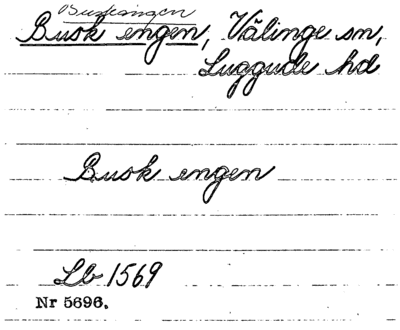 Buskängen
Busk engen, Välinge sn,
Luggude hd
Busk engen
Lb 1569
Nr 5696.